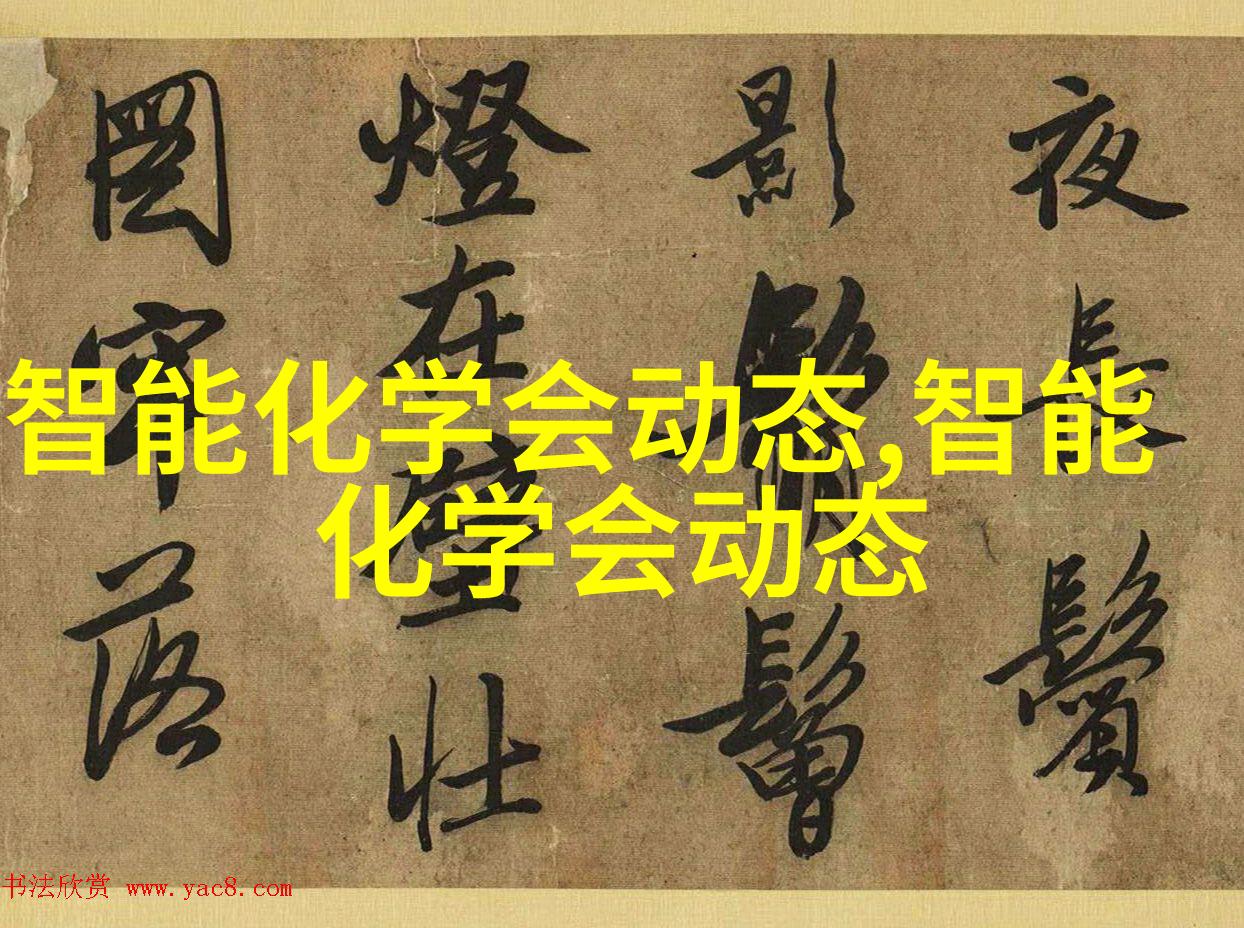 智能化学会动态,智能
化学会动态
夜長鬢
影鬅鬙
燈在壁壯
圖牢落
书法欣赏 www.yac8.com